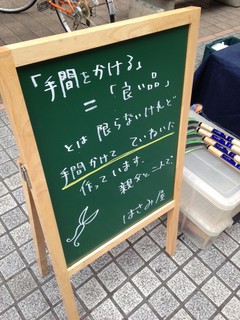 「手間をかける」
=「良い品」
とは 限らないけんど
手間かけて ていねいに
作っています。
親父と二人で、
はさみ屋